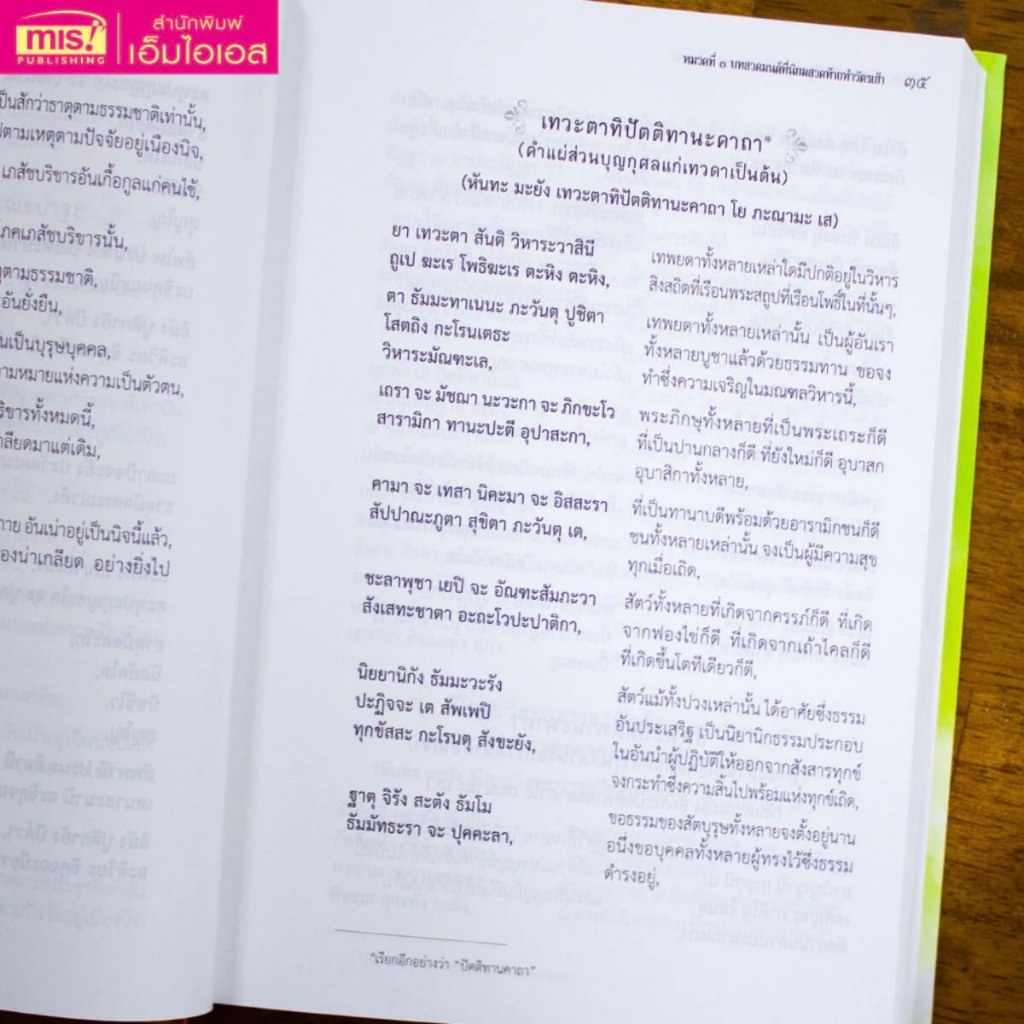 mis!
PUBLISHING
สำนักพิมพ์
เอ็มไอเอส
เป็นสักว่าธาตุตามธรรมชาติเท่านั้น,
ตามเหตุตามปัจจัยอยู่เนืองนิจ,
เภสัชบริขารอันเกื้อกูลแก่คนไข้,
ภคเภสัชบริขารนั้น,
ตุตามธรรมชาติ,
ะอันยั่งยืน,
ันเป็นบุรุษบุคคล,
ความหมายแห่งความเป็นตัวตน,
ริขารทั้งหมดนี้,
กลียดมาแต่เดิม,
กาย อันเน่าอยู่เป็นนิจนี้แล้ว,
องน่าเกลียด อย่างยิ่งไป
หมวดที่ ๑ บทสวดมนต์ที่นิยมสวดท้ายทำวัตรเช้า ๓๕
เทวะตาทิปัตติทานะคาถา*
(คำแผ่ส่วนบุญกุศลแก่เทวดาเป็นต้น)
(หันทะ มะยัง เทวะตาทิปัตติทานะคาถา โย ภะณามะ เส)
ยา เทวะตา สันติ วิหาระวาสินี
ถูเป ฆะเร โพธิฆะเร ตะหิง ตะหิง,
ตา ธัมมะทาเนนะ ภะวันตุ ปูชิตา
โสตถิง กะโรนเตธะ
วิหาระมัณฑะเล,
เถรา จะ มัชฌา นะวะกา จะ ภิกขะโว
สารามิกา ทานะปะตี อุปาสะกา,
คามา จะ เทสา นิคะมา จะ อิสสะรา
สัปปาณะภูตา สุขิตา ภะวันตุ เต,
ชะลาพุชา เยปิ จะ อัณฑะสัมภะวา
สังเสทะชาตา อะถะโวปะปาติกา,
นิยยานิกัง ธัมมะวะรัง
ปะฏิจจะ เต สัพเพปิ
ทุกขัสสะ กะโรนตุ สังขะยัง,
ฐาตุ จิรัง สะตัง ธัมโม
ธัมมัทธะรา จะ ปุคคะลา,
เทพยดาทั้งหลายเหล่าใดมีปกติอยู่ในวิหาร
สิงสถิตที่เรือนพระสถูปที่เรือนโพธิ์ในที่นั้นๆ,
เทพยดาทั้งหลายเหล่านั้น เป็นผู้อันเรา
ทั้งหลายบูชาแล้วด้วยธรรมทาน ขอจง
ทำซึ่งความเจริญในมณฑลวิหารนี้,
พระภิกษุทั้งหลายที่เป็นพระเถระก็ดี
ที่เป็นปานกลางก็ดี ที่ยังใหม่ก็ดี อุบาสก
อุบาสิกาทั้งหลาย,
ที่เป็นทานาบดีพร้อมด้วยอารามิกชนก็ดี
ชนทั้งหลายเหล่านั้น จงเป็นผู้มีความสุข
ทุกเมื่อเถิด,
สัตว์ทั้งหลายที่เกิดจากครรภ์ก็ดี ที่เกิด
จากฟองไข่ก็ดี ที่เกิดจากเถ้าไคลก็ดี
ที่เกิดขึ้นโตทีเดียวก็ดี,
สัตว์แม้ทั้งปวงเหล่านั้น ได้อาศัยซึ่งธรรม
อันประเสริฐ เป็นนิยานิกธรรมประกอบ
ในอันนำผู้ปฏิบัติให้ออกจากสังสารทุกข์
จงกระทำซึ่งความสิ้นไปพร้อมแห่งทุกข์เถิด,
ขอธรรมของสัตบุรุษทั้งหลายจงตั้งอยู่นาน
อนึ่งขอบุคคลทั้งหลายผู้ทรงไว้ซึ่งธรรม
ดำรงอยู่,
*เรียกอีกอย่างว่า "ปัตติทานคาถา"